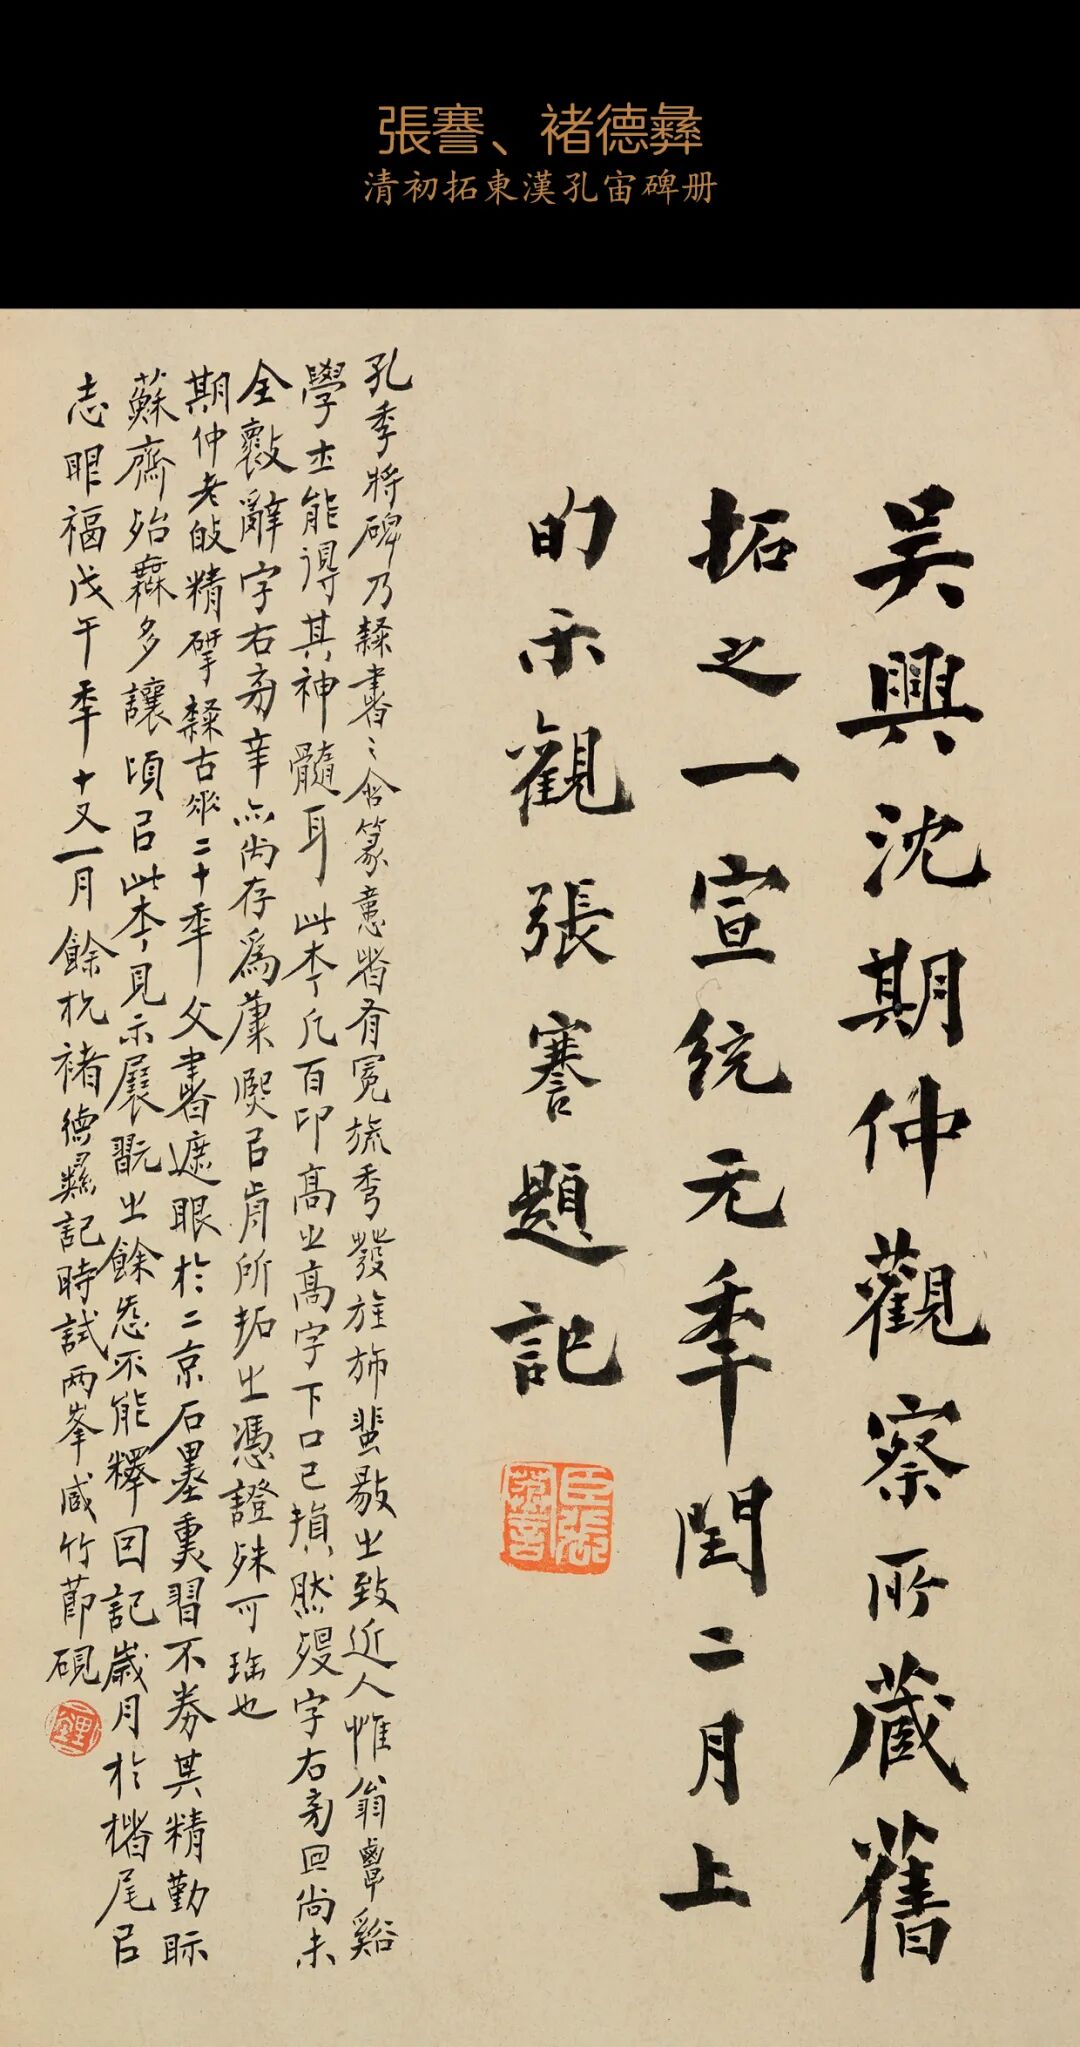 張謇、褚德彝
清初拓東漢孔宙碑册
吳興沈期仲觀察所藏舊
拓之一宣統元季閏二月上
的示觀張謇題記
臣張謇
孔季將碑乃隸書之含篆意者有冕旒秀發旌斾蜚敭之致近人惟翁覃谿
學士能得其神髓耳此本凡百印高之高字下口已損然歿字右旁回尚未
全斁辭字右旁辛亦尚存為康熙㠯前所拓之憑證殊可珤也
期仲老的精揅隸古垂二十季父書遮眼於二京石墨熏習不劵其精勤眎
蘇齋殆無多讓頃㠯此本見示展翫之餘忍不能釋因記歲月於楮尾㠯
志眼福戊午季十又一月餘杭褚德彝記時試兩峯咸竹節硯